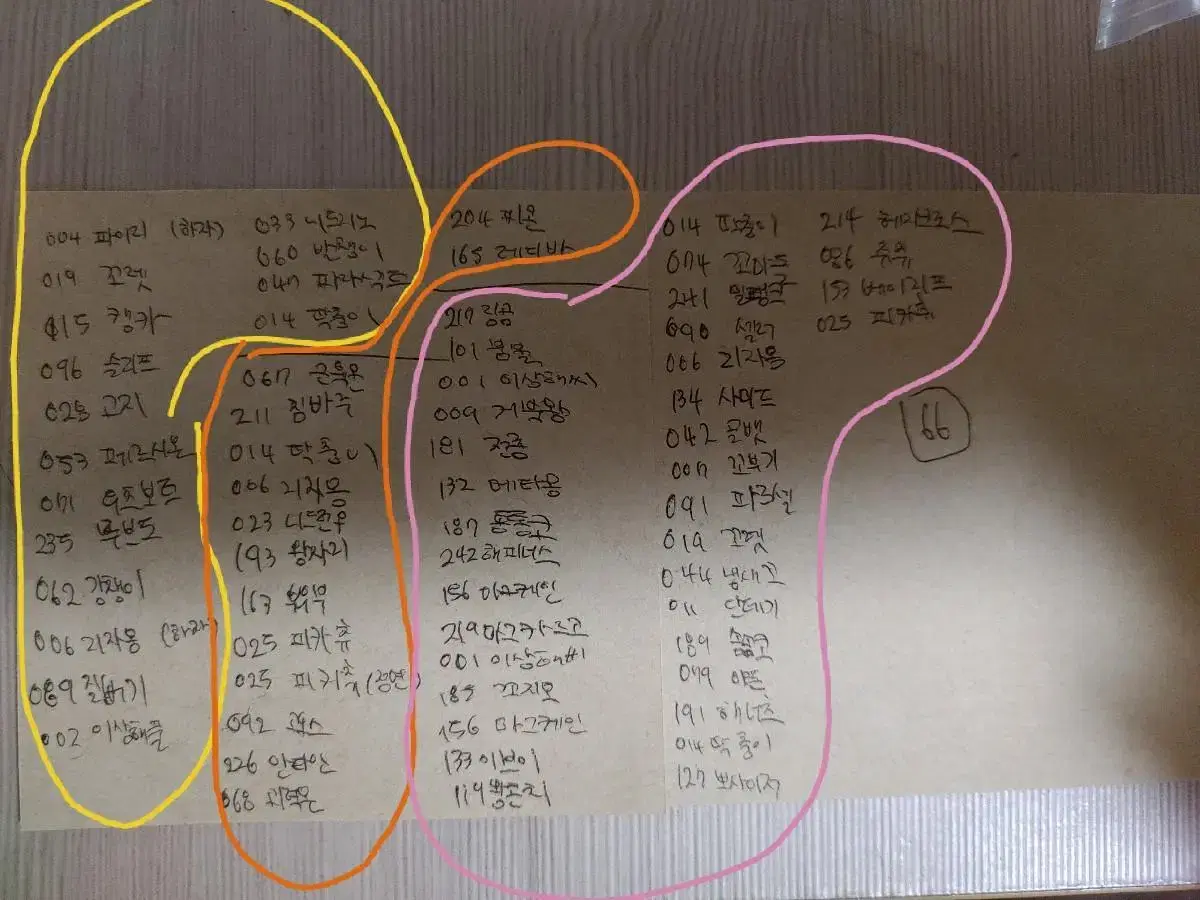 004 파이리 (하자)
019 꼬렛
115 캥카
096 슬리프
023 고지
053 페르시온
071 우츠보트
235 루브도
062 강챙이
006 리자몽 (하자)
089 질뻐기
002 이상해풀
033 니드리노
060 발챙이
047 파라섹트
014 딱충이
067 근육몬
211 침바루
014 딱충이
006 리자몽
023
193 왕자리
163 부우부
025 피카츄
025 피카츄
092 고오스
226 만타인
068 괴력몬
204 피콘
165 레디바
217 링곰
101 붐볼
001 이상해씨
009 거북왕
181 전룡
132 메타몽
187 통통코
242 해피너스
156 마그케인
219 마그카르고
001 이상해씨
185 꼬지모
156 마그케인
133 이브이
119 왕콘치
014 딱충이
074 꼬마돌
241 밀탱크
090 셀러
006 리자몽
134 샤미드
042 골뱃
007 꼬부기
091 파르셀
019 꼬렛
044 냄새꼬
011 단데기
189 솜솜코
079 야돈
191 해너츠
014 딱충이
127 쁘사이저
214 헤라크로스
086 쥬쥬
153 베이리프
025 피카츄
66